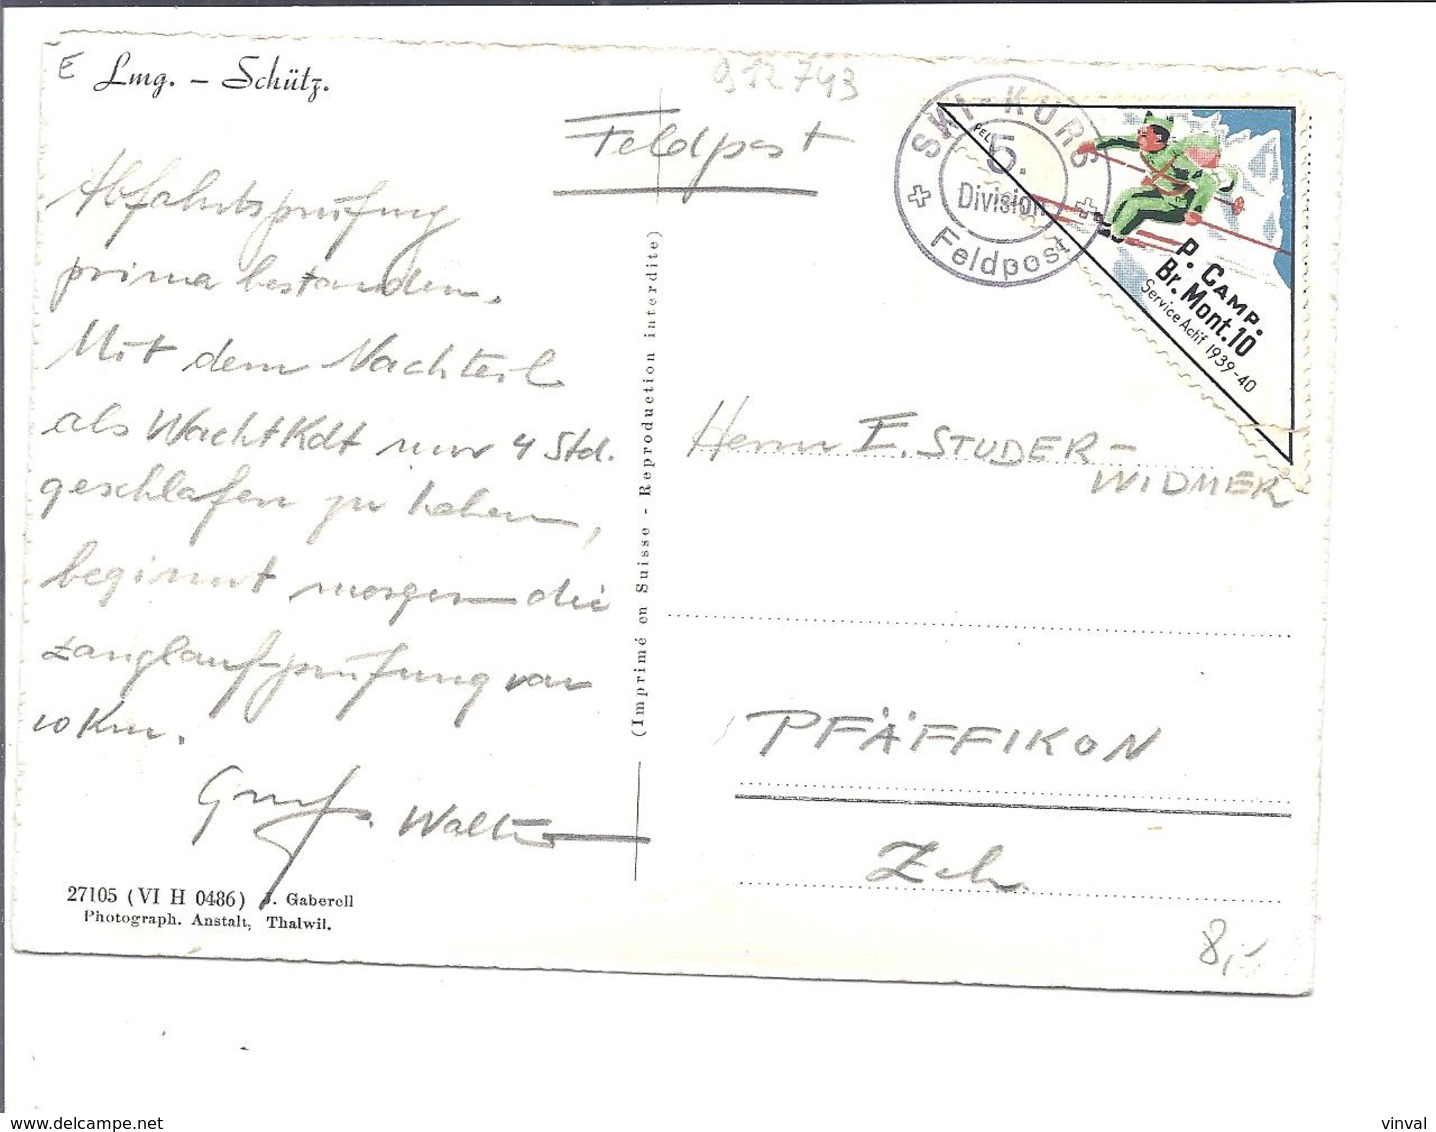 E Lmg. – Schütz.
912743
Feldpost
Abfahrtsprüfung
prima bestanden.
Mit dem Nachteil
als WachtKdt nur 4 Std.
geschlafen zu haben,
beginnt morgen die
Langlaufprüfung von
10 Km.
Gruss. Walter
27105 (VI H 0486) J. Gaberell
Photograph. Anstalt, Thalwil.
(Imprimé en Suisse - Reproduction interdite)
SKI-KURS
5.
Division
Feldpost
P. CAMP.
Br. Mont. 10
Service Actif 1939-40
Herrn E. STUDER-
WIDMER
PFÄFFIKON
Zch.
8,-
delcampe.net
vinval